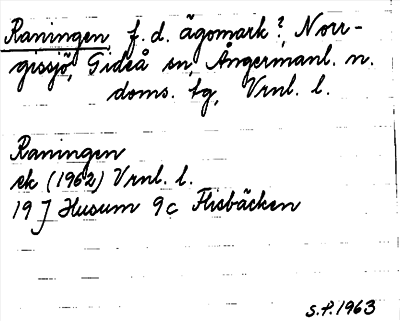 Raningen f. d. ägomark?, Norr-
gissjö, Gideå sn, Ångermanl. n.
doms. tg, Vrnl. l.
Raningen
ek (1962) Vrnl. l.
19 J Husum 9c Flisbäcken
S.P. 1963